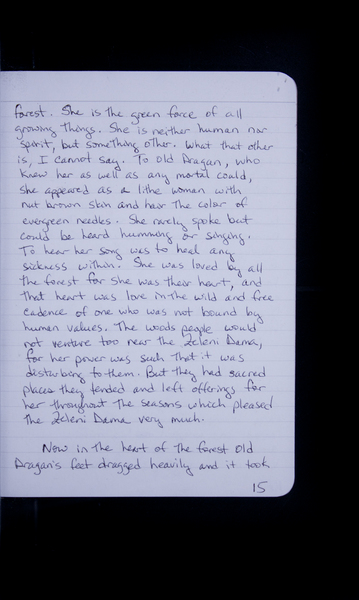 forest. She is the green force of all
growing things. She is neither human nor
spirit, but something other. What that other
is, I cannot say. To Old Dragan, who
knew her as well as any mortal could,
she appeared as a lithe woman with
nut brown skin and hair the color of
evergreen needles. She rarely spoke but
could be heard humming or singing.
To hear her song was to heal any
sickness within. She was loved by all
the forest for she was their heart, and
that heart was love in the wild and free
cadence of one who was not bound by
human values. The woods people would
not venture too near the Zeleni Dama,
for her power was such that it was
disturbing to them. But they had sacred
places they tended and left offerings for
her throughout the seasons which pleased
the Zeleni Dama very much.
Now in the heart of the forest Old
Dragan's feet dragged heavily and it took
15